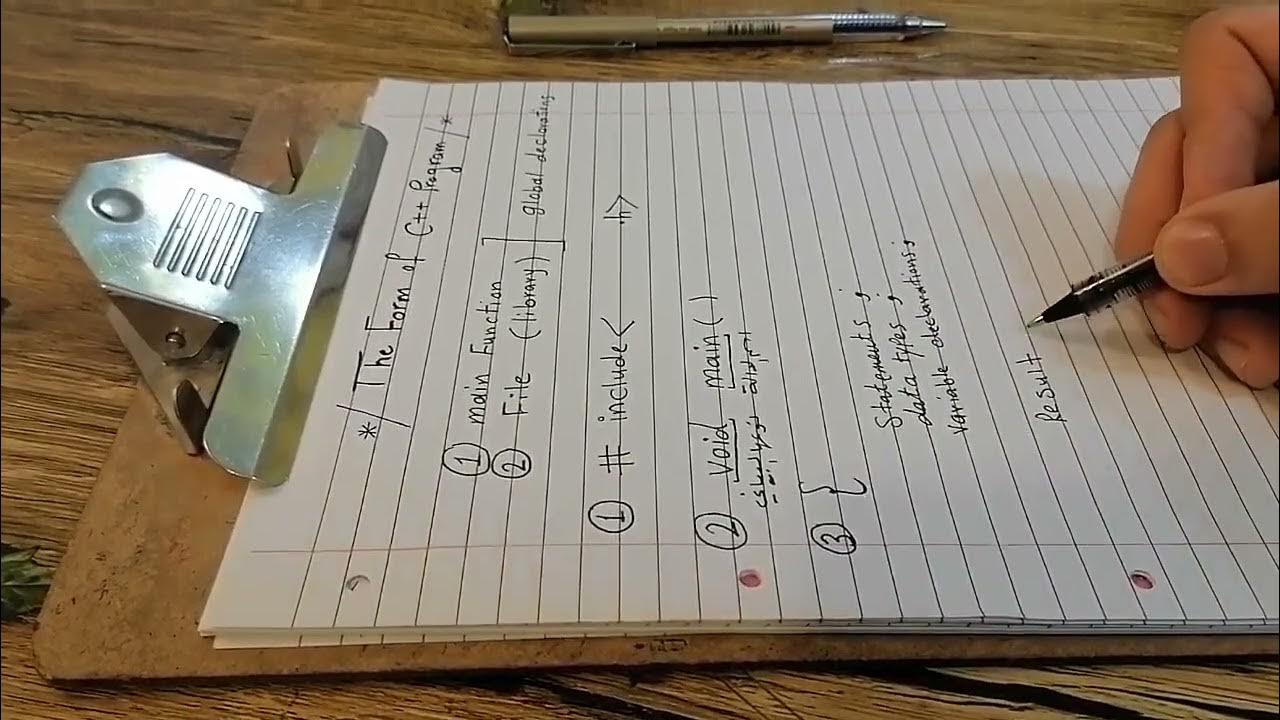 */ The Form of C++ Program /*
① main Function
② File (library)] global declarating
① # include< .h>
② void main()
③ {
Statements ;
data types ;
Variable declarations;
Result